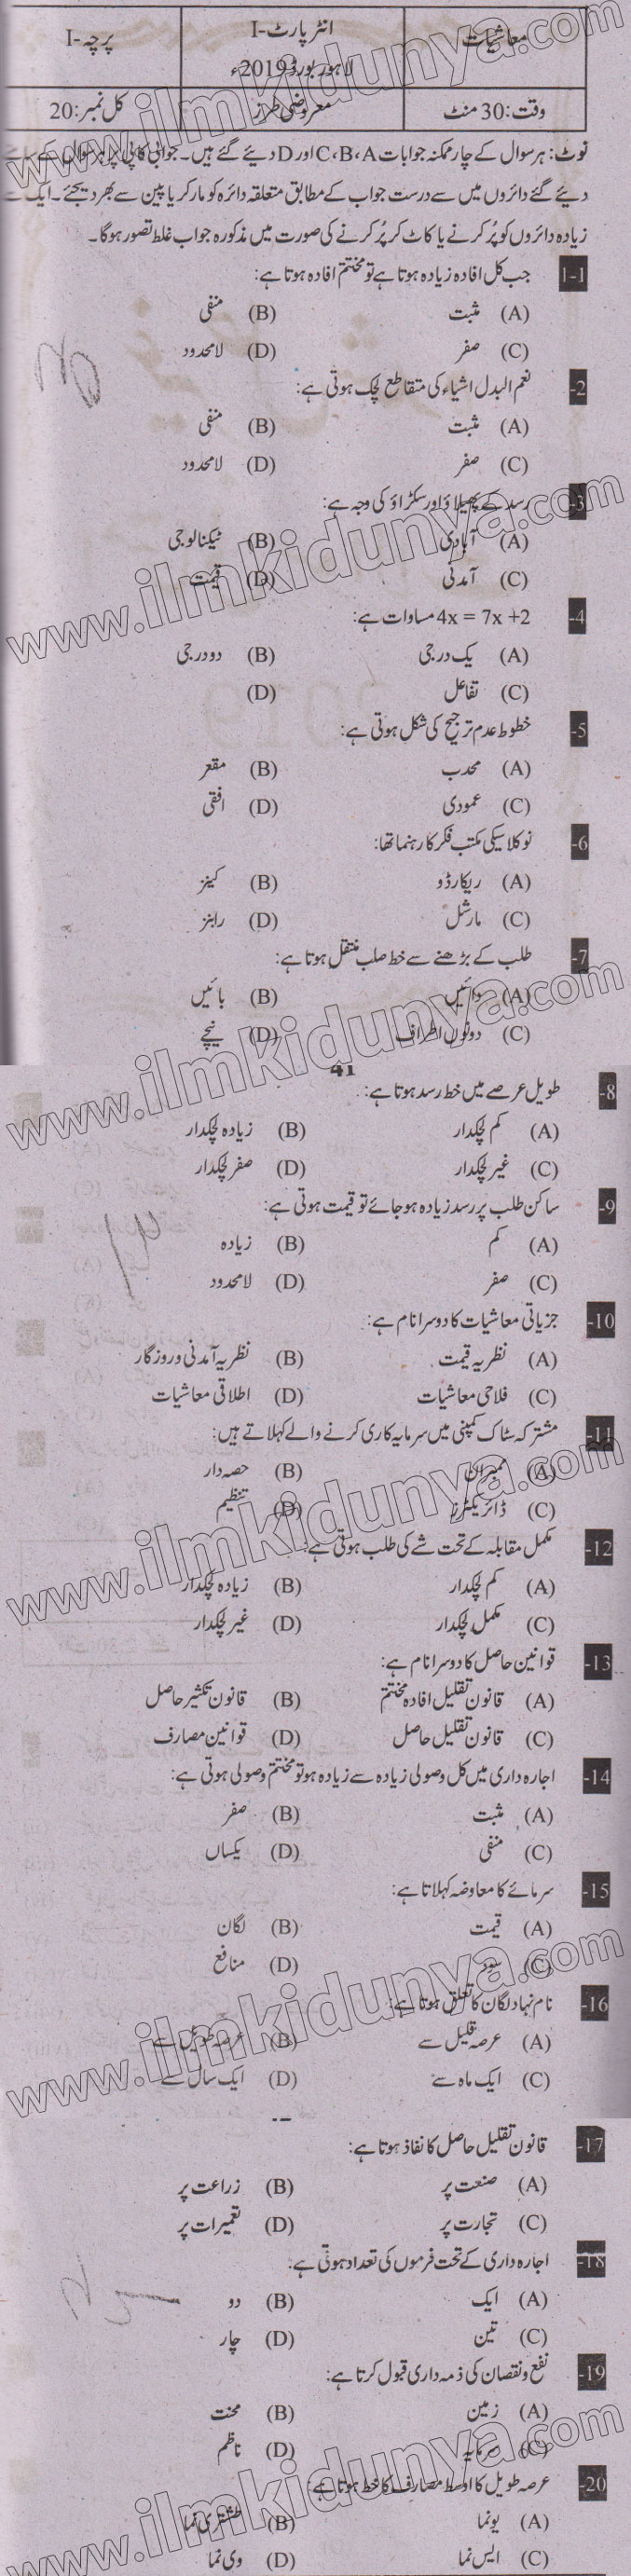 معاشیات
انٹر پارٹ-I
لاہور بورڈ 2019ء
پرچہ-I
وقت: 30 منٹ
معروضی طرز
کل نمبر: 20
نوٹ: ہر سوال کے چار ممکنہ جوابات C،B،A اور D دیے گئے ہیں۔ جوابی کاپی پر ہر سوال کے سامنے
دیئے گئے دائروں میں سے درست جواب کے مطابق متعلقہ دائرہ کو مارکر یا پین سے بھر دیجئے۔ ایک سے
زیادہ دائروں کو پُر کرنے یا کاٹ کر پُر کرنے کی صورت میں مذکورہ جواب غلط تصور ہوگا۔
1-1 جب کل افادہ زیادہ ہوتا ہے تو مختتم افادہ ہوتا ہے:
(A) مثبت (B) منفی
(C) صفر (D) لامحدود
2- نعم البدل اشیاء کی متقاطع لچک ہوتی ہے:
(A) مثبت (B) منفی
(C) صفر (D) لامحدود
3- رسد کے پھیلاؤ اور سکڑاؤ کی وجہ ہے:
(A) آبادی (B) ٹیکنالوجی
(C) آمدنی (D) قیمت
4- 4x = 7x +2 مساوات ہے:
(A) یک درجی (B) دو درجی
(C) تفاعل (D)
5- خطوط عدم ترجیح کی شکل ہوتی ہے:
(A) محدب (B) مقعر
(C) عمودی (D) افقی
6- نوکلاسیکی مکتب فکر کا رہنما تھا:
(A) ریکارڈو (B) کینز
(C) مارشل (D) رابنز
7- طلب کے بڑھنے سے خط طلب منتقل ہوتا ہے:
(A) دائیں (B) بائیں
(C) دونوں اطراف (D) نیچے
41
8- طویل عرصے میں خط رسد ہوتا ہے:
(A) کم لچکدار (B) زیادہ لچکدار
(C) غیر لچکدار (D) صفر لچکدار
9- ساکن طلب پر رسد زیادہ ہو جائے تو قیمت ہوتی ہے:
(A) کم (B) زیادہ
(C) صفر (D) لامحدود
10- جزیاتی معاشیات کا دوسرا نام ہے:
(A) نظریہ قیمت (B) نظریہ آمدنی و روزگار
(C) فلاحی معاشیات (D) اطلاقی معاشیات
11- مشترکہ سٹاک کمپنی میں سرمایہ کاری کرنے والے کہلاتے ہیں:
(A) ممبران (B) حصہ دار
(C) ڈائریکٹرز (D) تنظیم
12- مکمل مقابلہ کے تحت شے کی طلب ہوتی ہے:
(A) کم لچکدار (B) زیادہ لچکدار
(C) مکمل لچکدار (D) غیر لچکدار
13- قوانین حاصل کا دوسرا نام ہے:
(A) قانون تقلیل افادہ مختتم (B) قانون تکثیر حاصل
(C) قانون تقلیل حاصل (D) قوانین مصارف
14- اجارہ داری میں کل وصولی زیادہ سے زیادہ ہو تو مختتم وصولی ہوتی ہے:
(A) مثبت (B) صفر
(C) منفی (D) یکساں
15- سرمائے کا معاوضہ کہلاتا ہے:
(A) قیمت (B) لگان
(C) سود (D) منافع
16- نام نہاد لگان کا تعلق ہوتا ہے:
(A) عرصہ قلیل سے (B) عرصہ طویل سے
(C) ایک ماہ سے (D) ایک سال سے
17- قانون تقلیل حاصل کا نفاذ ہوتا ہے:
(A) صنعت پر (B) زراعت پر
(C) تجارت پر (D) تعمیرات پر
18- اجارہ داری کے تحت فرموں کی تعداد ہوتی ہے:
(A) ایک (B) دو
(C) تین (D) چار
19- نفع و نقصان کی ذمہ داری قبول کرتا ہے:
(A) زمین (B) محنت
(C) سرمایہ (D) ناظم
20- عرصہ طویل کا اوسط مصارف کا خط ہوتا ہے:
(A) یو نما (B) طشتری نما
(C) ایس نما (D) وی نما
www.ilmkidunya.com
www.ilmkidunya.com
www.ilmkidunya.com
www.ilmkidunya.com
www.ilmkidunya.com
www.ilmkidunya.com